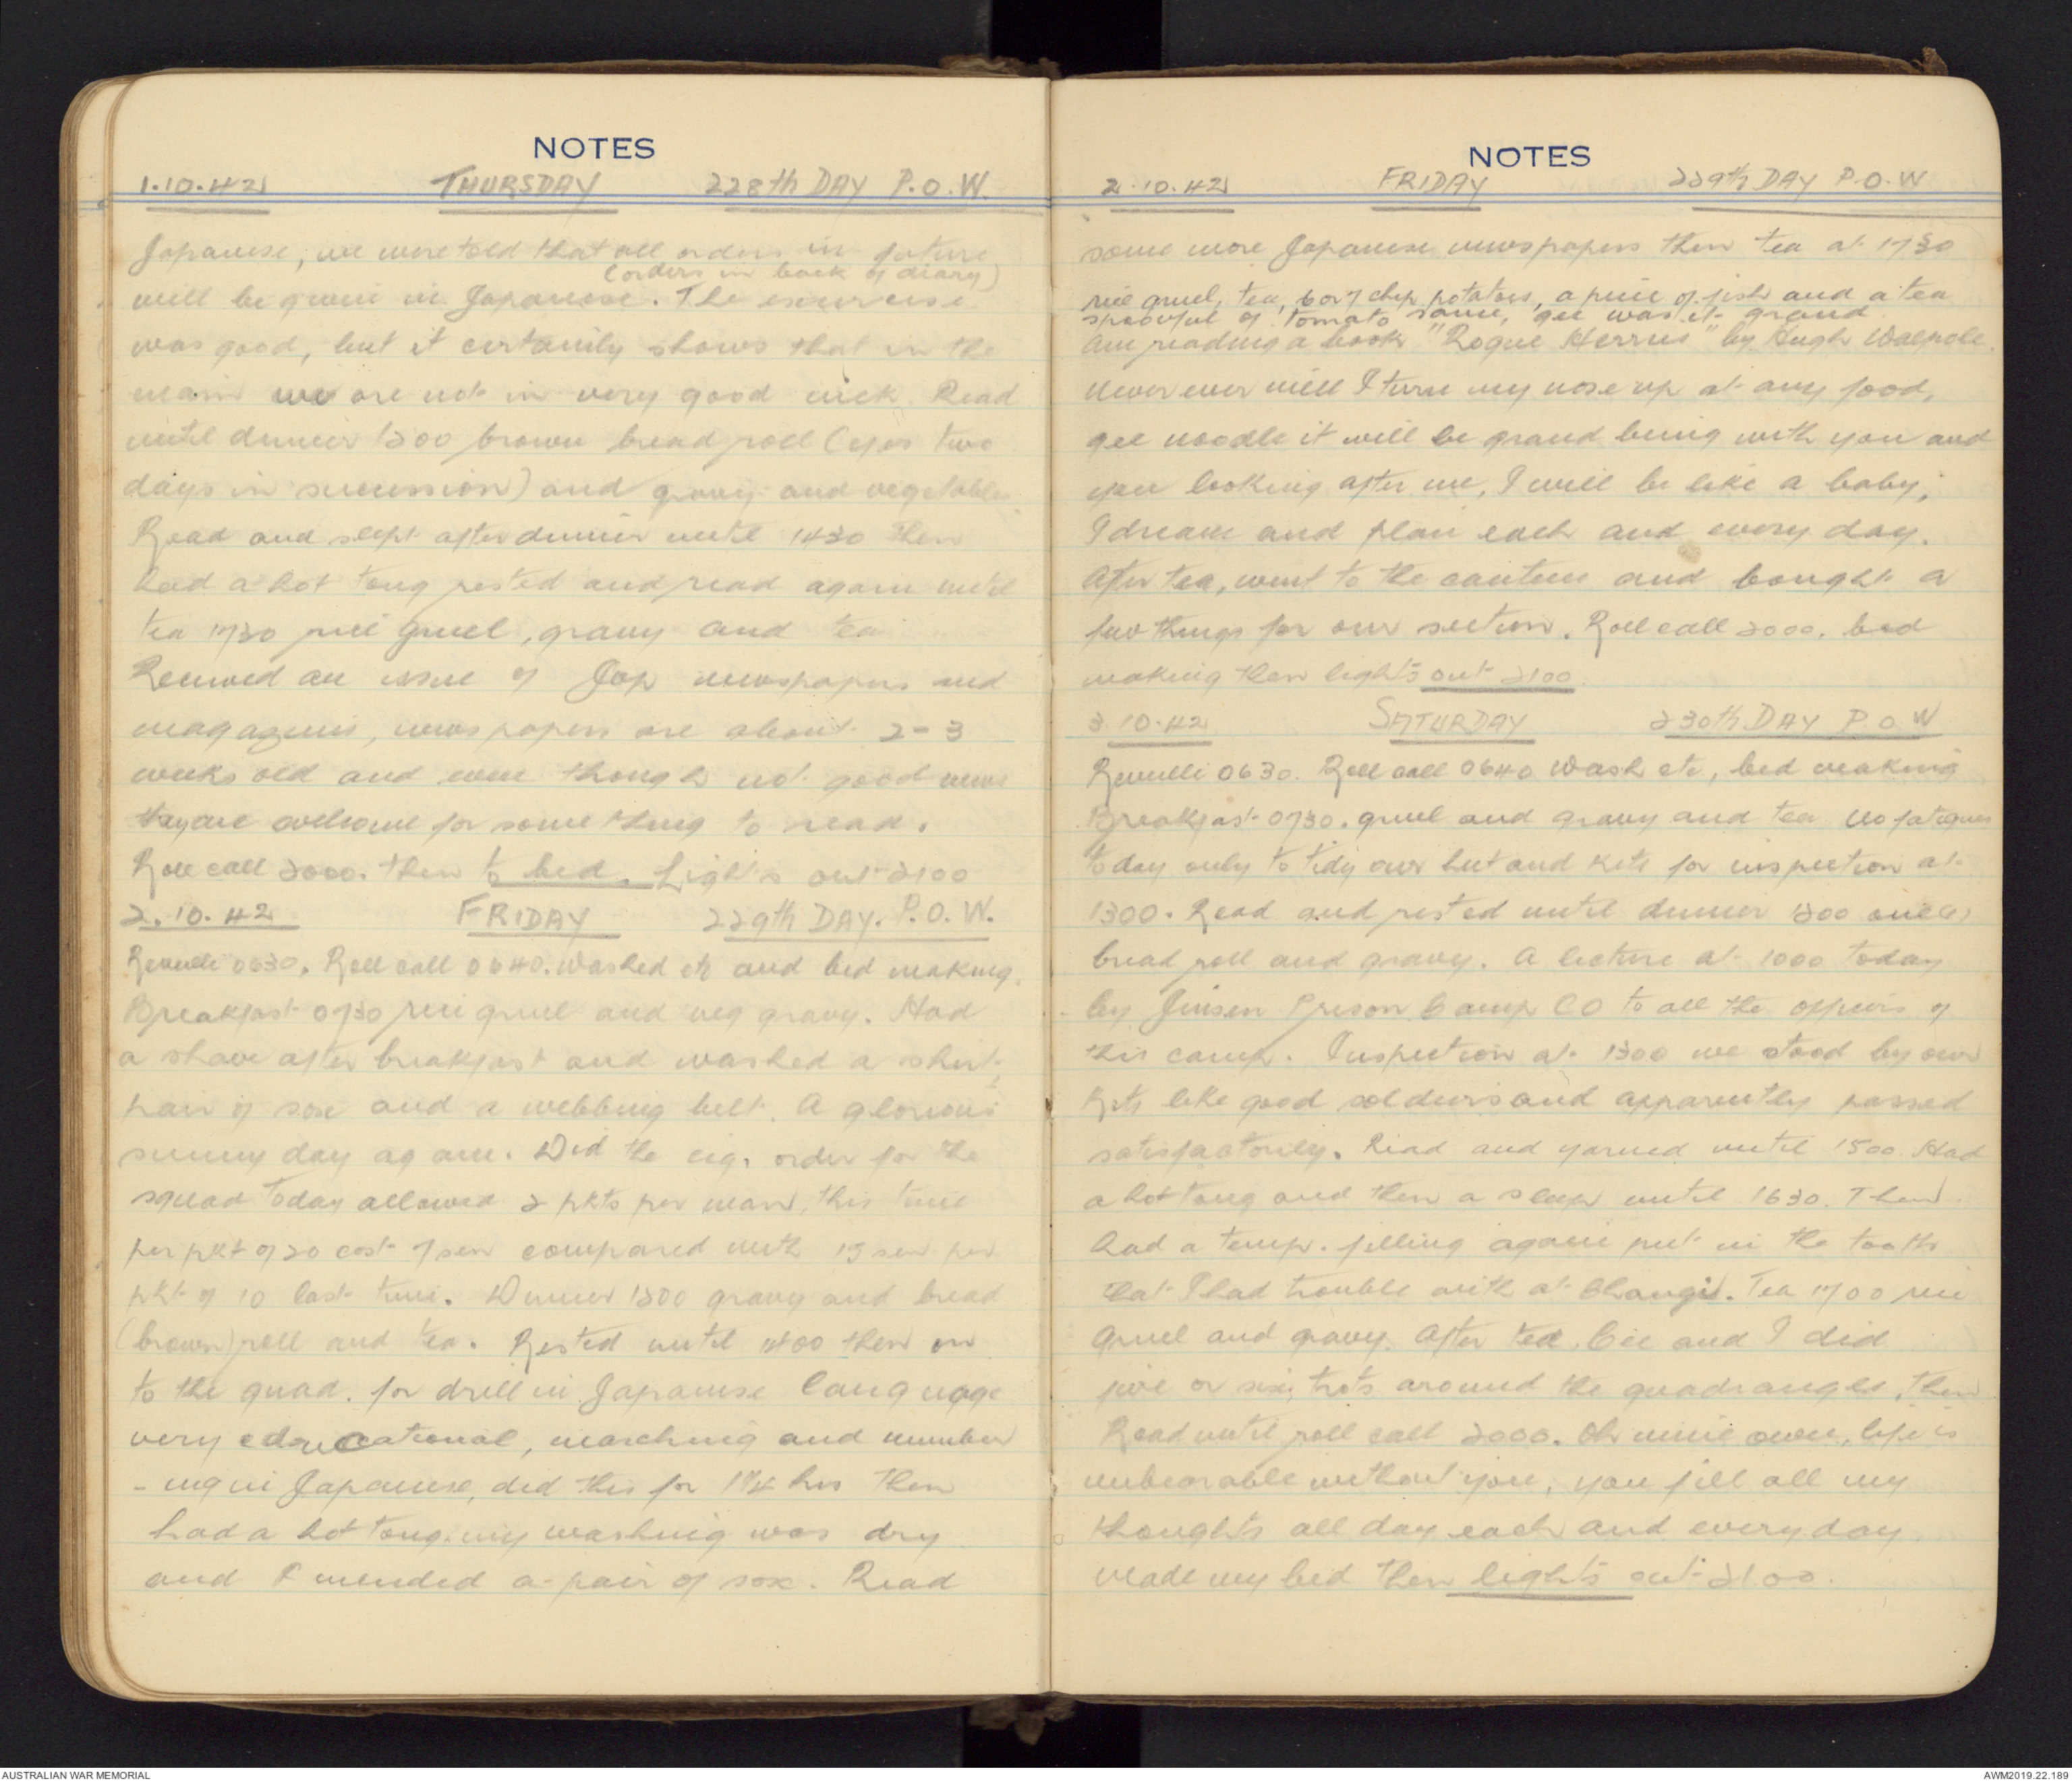 NOTES
1.10.42 THURSDAY 228th DAY P.O.W.
Japanese, we were told that all orders in future
(orders in back of diary)
will be given in Japanese. The exercise
was good, but it certainly shows that in the
main we are not in very good nick. Read
until dinner 1200 brown bread roll (yes two
days in sucession) and gravy and vegetables.
Read and slept after dinner until 1430 then
had a hot tong rested and read again until
tea 1730 rice gruel, gravy and tea
Received an issue of Jap newspapers and
magazines, newspapers are about 2-3
weeks old and even though not good news
they are welcome for something to read.
Roll call 2000. then to bed. Lights out 2100
2.10.42 FRIDAY 229th DAY. P.O.W.
Reveille 0630. Roll call 0640. Washed etc and bed making.
Breakfast 0730 rice gruel and veg gravy. Had
a shave after breakfast and washed a shirt,
pair of sox and a webbing belt. A glorious
sunny day again. Did the cig. order for the
squad today allowed 2 pkts per man, this time
per pkt of 20 cost 7 sen compared with 15 sen per
pkt of 10 last time. Dinner 1200 gravy and bread
(brown) roll and tea. Rested until 1400 then on
to the quad. for drill in Japanese language
very educational, marching and number
-ing in Japanese, did this for 1¼ hrs then
had a hot tong. my washing was dry
and I mended a pair of sox. Read
NOTES
2.10.42 FRIDAY 229th DAY P.O.W
some more Japanese newspapers then tea at 1730
rice gruel, tea, 6 or 7 chip potatoes, a piece of fish and a tea
spoonful of tomato sauce, gee was it grand
Am reading a book "Rogue Herries" by Hugh Walpole.
Never ever will I turn my nose up at any food,
gee noodle it will be grand being with you and
you looking after me, I will be like a baby,
I dream and plan each and every day.
After tea, went to the canteen and bought a
few things for our section. Roll call 2000. bed
making then lights out 2100.
3.10.42 SATURDAY 230th DAY P.O.W
Reveille 0630. Roll call 0640 Wash etc, bed making
Breakfast 0730. gruel and gravy and tea no fatigues
today only to tidy our hut and kits for inspection at
1300. Read and rested until dinner 1200 one (1)
bread roll and gravy. A lecture at 1000 today
by Jinsen Prison Camp CO to all the officers of
this camp. Inspection at 1300 we stood by our
kits like good soldiers and apparently passed
satisfactorily. Read and yarned until 1500. Had
a hot tong and then a sleep until 1630. Then
had a temp. filling again put in the tooth
that I had trouble with at Changi. Tea 1700 rice
gruel and gravy. After tea and I did
five or six trots around the quadrangle, then
Read until roll call 2000. Oh mine own, life is
unbearable without you, you fill all my
thoughts all day each and every day.
Made my bed then lights out 2100.
AUSTRALIAN WAR MEMORIAL
AWM2019.22.189